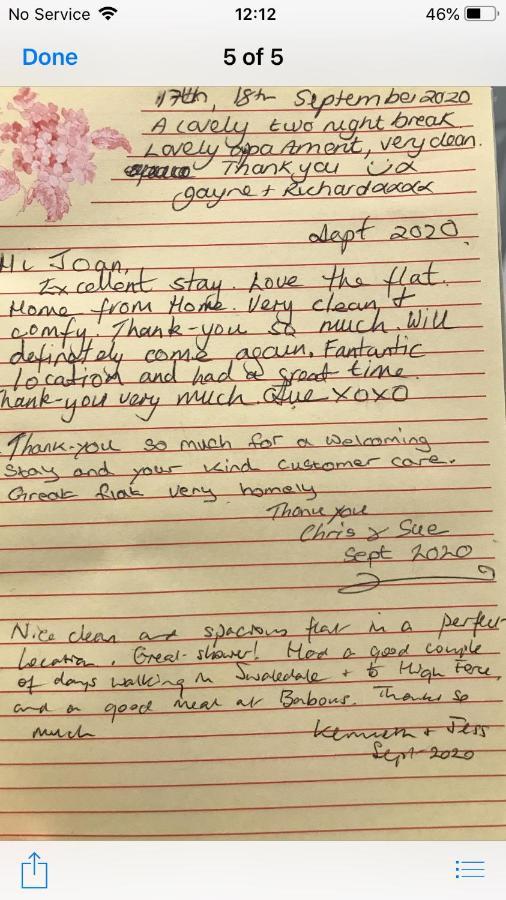 No Service
12:12
46%
Done
5 of 5
17th, 18th September 2020
A Lovely two night break.
Lovely appa Ament, very clean.
Thank you
Gayne + Richard xxxx
Sept 2020.
Hi Joan,
Excellent stay. Love the flat.
Home from Home. Very clean &
comfy. Thank-you so much. Will
definetely come again. Fantantic
location and had a great time.
Thank-you very much. Sue xoxo
Thank-you so much for a welcoming
Stay and your kind customer care.
Great flat very homely
Thank you
Chris & Sue
Sept 2020
Nice clean and spacious flat in a perfect
location. Great shower! Had a good couple
of days walking in Swaledale + to High Force,
and a good meal at Barbous. Thanks so
much
Kenneth + Jess
Sept 2020